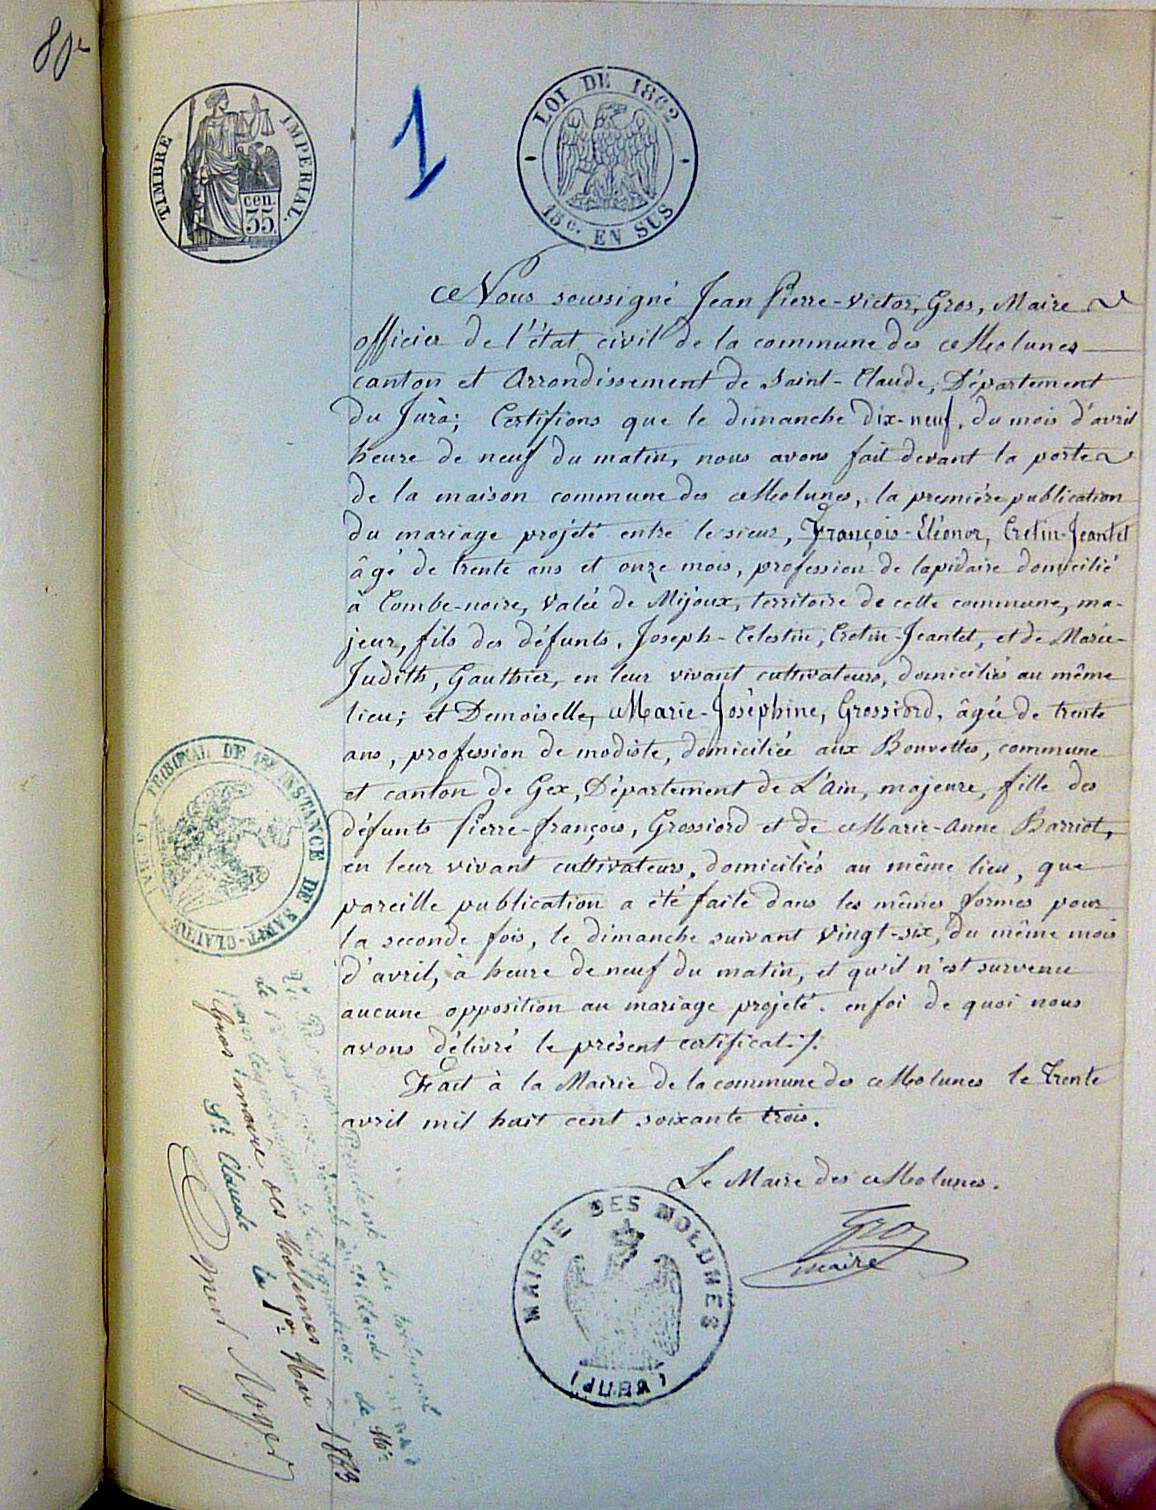 80e
TIMBRE IMPERIAL.
cen.
35
1
LOI DE 1862
15 c. EN SUS
Nous soussigné Jean Pierre-Victor, Gros, Maire
officier de l'état civil de la commune des Molunes
canton et Arrondissement de Saint-Claude, Département
du Jura; Certifions que le dimanche dix-neuf, du mois d'avril
heure de neuf du matin, nous avons fait devant la porte
de la maison commune des Molunes, la première publication
du mariage projété entre le sieur, François-Eléonor, Cretin-Jeantet
âgé de trente ans et onze mois, profession de lapidaire domicilié
à Combe-noire, Valée de Mijoux, territoire de cette commune, ma-
jeur, fils des défunts, Joseph-Célestin, Cretin-Jeantet, et de Marie-
Judith, Gauthier, en leur vivant cultivateurs, domiciliés au même
lieu; et Demoiselle, Marie-Joséphine, Grossiord, âgée de trente
ans, profession de modiste, domiciliée aux Bouvettes, commune
et canton de Gex, Département de L'Ain, majeure, fille des
défunts Pierre-françois, Grossiord et de Marie-Anne Barriot,
en leur vivant cultivateurs, domiciliés au même lieu, que
pareille publication a été faite dans les mêmes formes pour
la seconde fois, le dimanche suivant Vingt-six, du même mois
d'avril, à heure de neuf du matin, et qu'il n'est survenu
aucune opposition au mariage projeté. en foi de quoi nous
avons délivré le présent certificat./.
Fait à la Mairie de la commune des Molunes le Trente
avril mil huit cent soixante trois.
Le Maire des Molunes.
Gros
maire
MAIRIE DES MOLUNES
(JURA)
TRIBUNAL DE 1ERE INSTANCE DE SAINT-CLAUDE
Président du tribunal
de 1re instance St Claude
pour légalisation de la signature de Mr
Gros maire des Molunes
St Claude le 1er Mai 1863